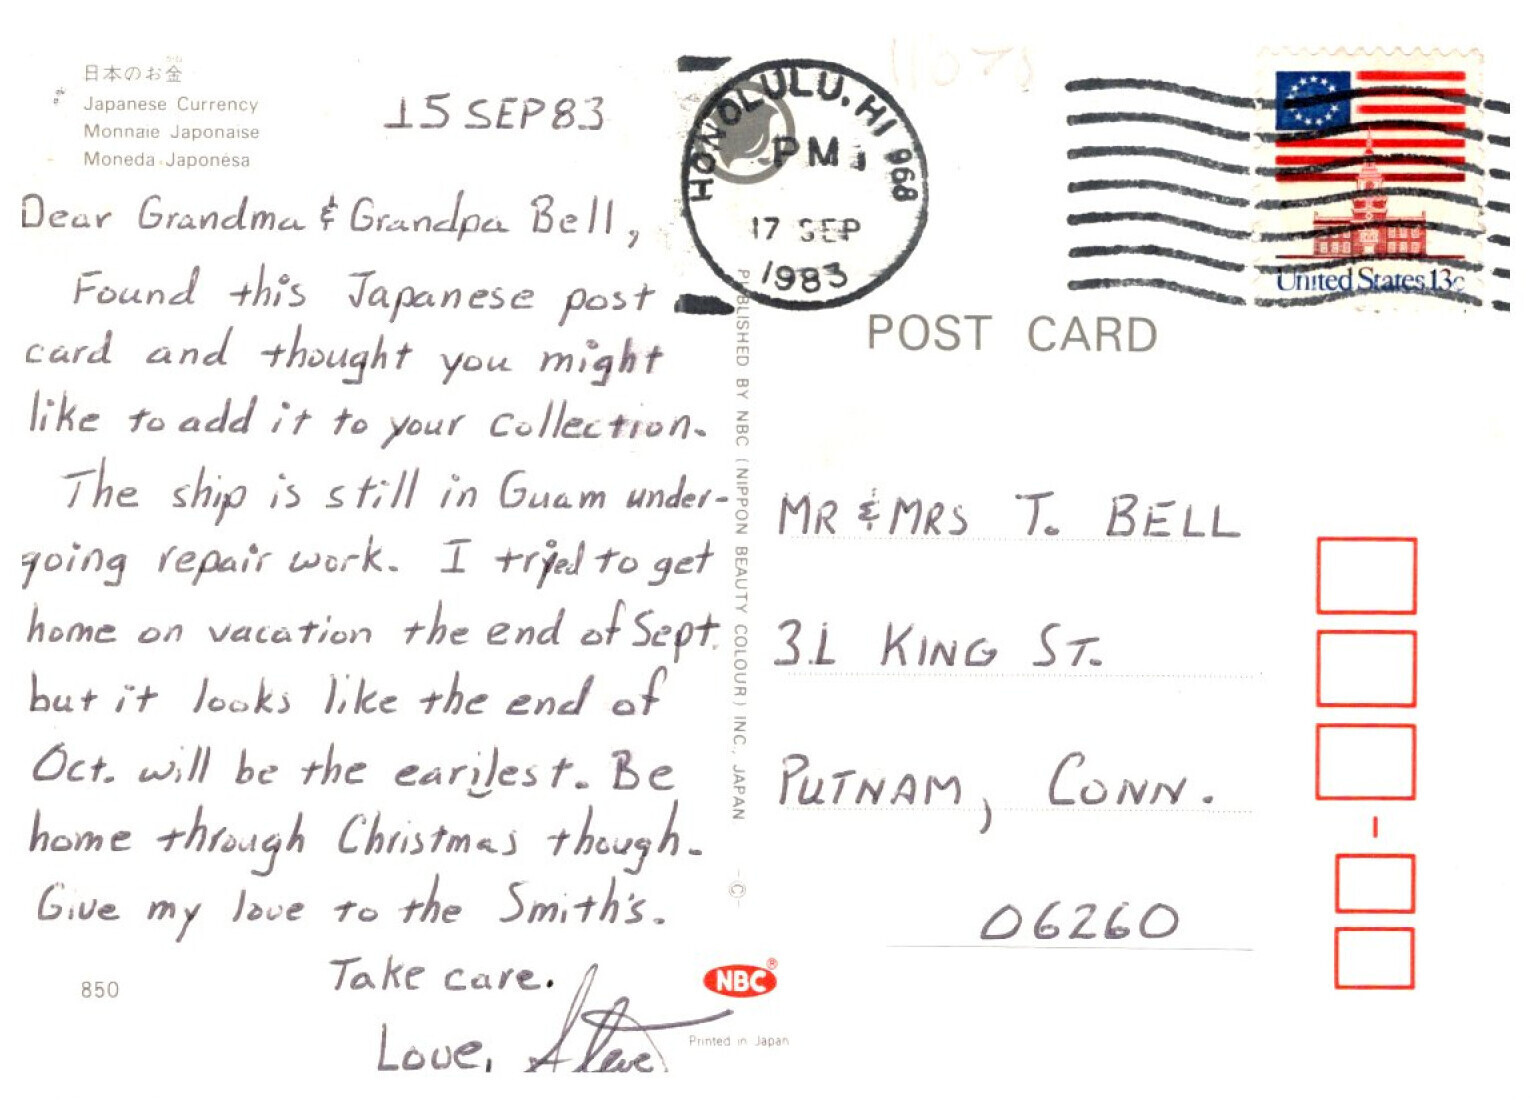 日本のお金
Japanese Currency
Monnaie Japonaise
Moneda Japonésa
15 SEP 83
Dear Grandma & Grandpa Bell,
Found this Japanese post
card and thought you might
like to add it to your collection.
The ship is still in Guam under-
going repair work. I tried to get
home on vacation the end of Sept.
but it looks like the end of
Oct. will be the earilest. Be
home through Christmas though.
Give my love to the Smith's.
Take care.
Love, Steve
850
PUBLISHED BY NBC (NIPPON BEAUTY COLOUR) INC., JAPAN
©
NBC®
Printed in Japan
HONOLULU, HI 968
PM
17 SEP
1983
United States 13c
POST CARD
MR & MRS T. BELL
31 KING ST.
PUTNAM, CONN.
06260